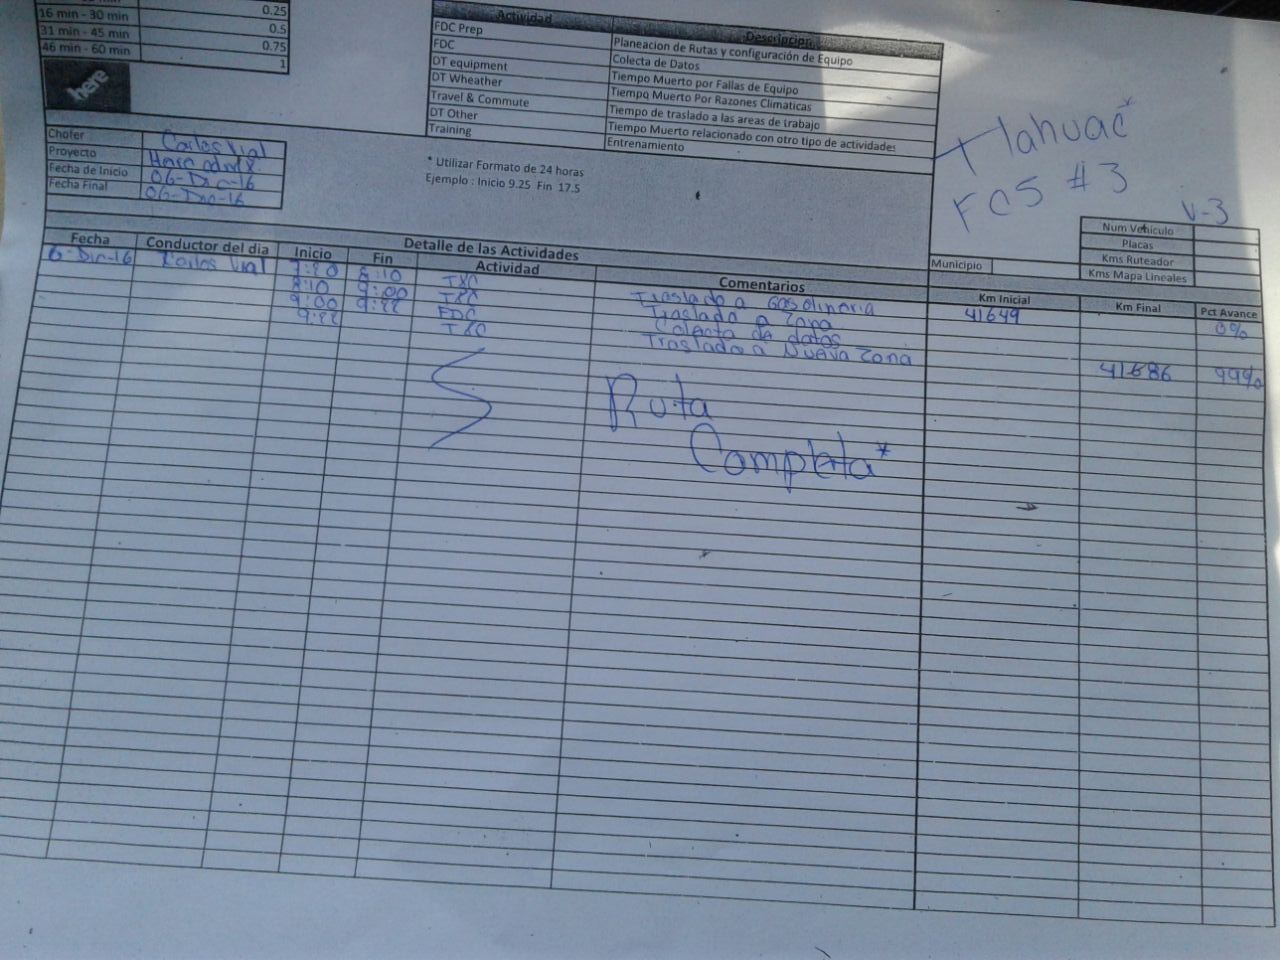 0.25
16 min - 30 min 0.5
31 min - 45 min 0.75
46 min - 60 min 1
here
Actividad Descripcion
FDC Prep Planeacion de Rutas y configuración de Equipo
FDC Colecta de Datos
DT equipment Tiempo Muerto por Fallas de Equipo
DT Wheather Tiempo Muerto Por Razones Climaticas
Travel & Commute Tiempo de traslado a las areas de trabajo
DT Other Tiempo Muerto relacionado con otro tipo de actividades
Training Entrenamiento
* Utilizar Formato de 24 horas
Ejemplo : Inicio 9.25 Fin 17.5
Tlahuac*
FCS #3
V-3
Chofer Carlos Vial
Proyecto Here
Fecha de Inicio 06-Dic-16
Fecha Final 06-Dic-16
Num Vehiculo
Placas
Kms Ruteador
Kms Mapa Lineales
Municipio
Detalle de las Actividades
Fecha Conductor del dia Inicio Fin Actividad Comentarios Km Inicial Km Final Pct Avance
6-Dic-16 Carlos Vial 8:10 T&C Traslado a Gasolineria 41649 0%
8:10 9:00 T&C Traslado a Zona
9:00 9:22 FDC Colecta de datos
9:22 T&C Traslado a Nueva Zona 41686 99%
Ruta
Completa*